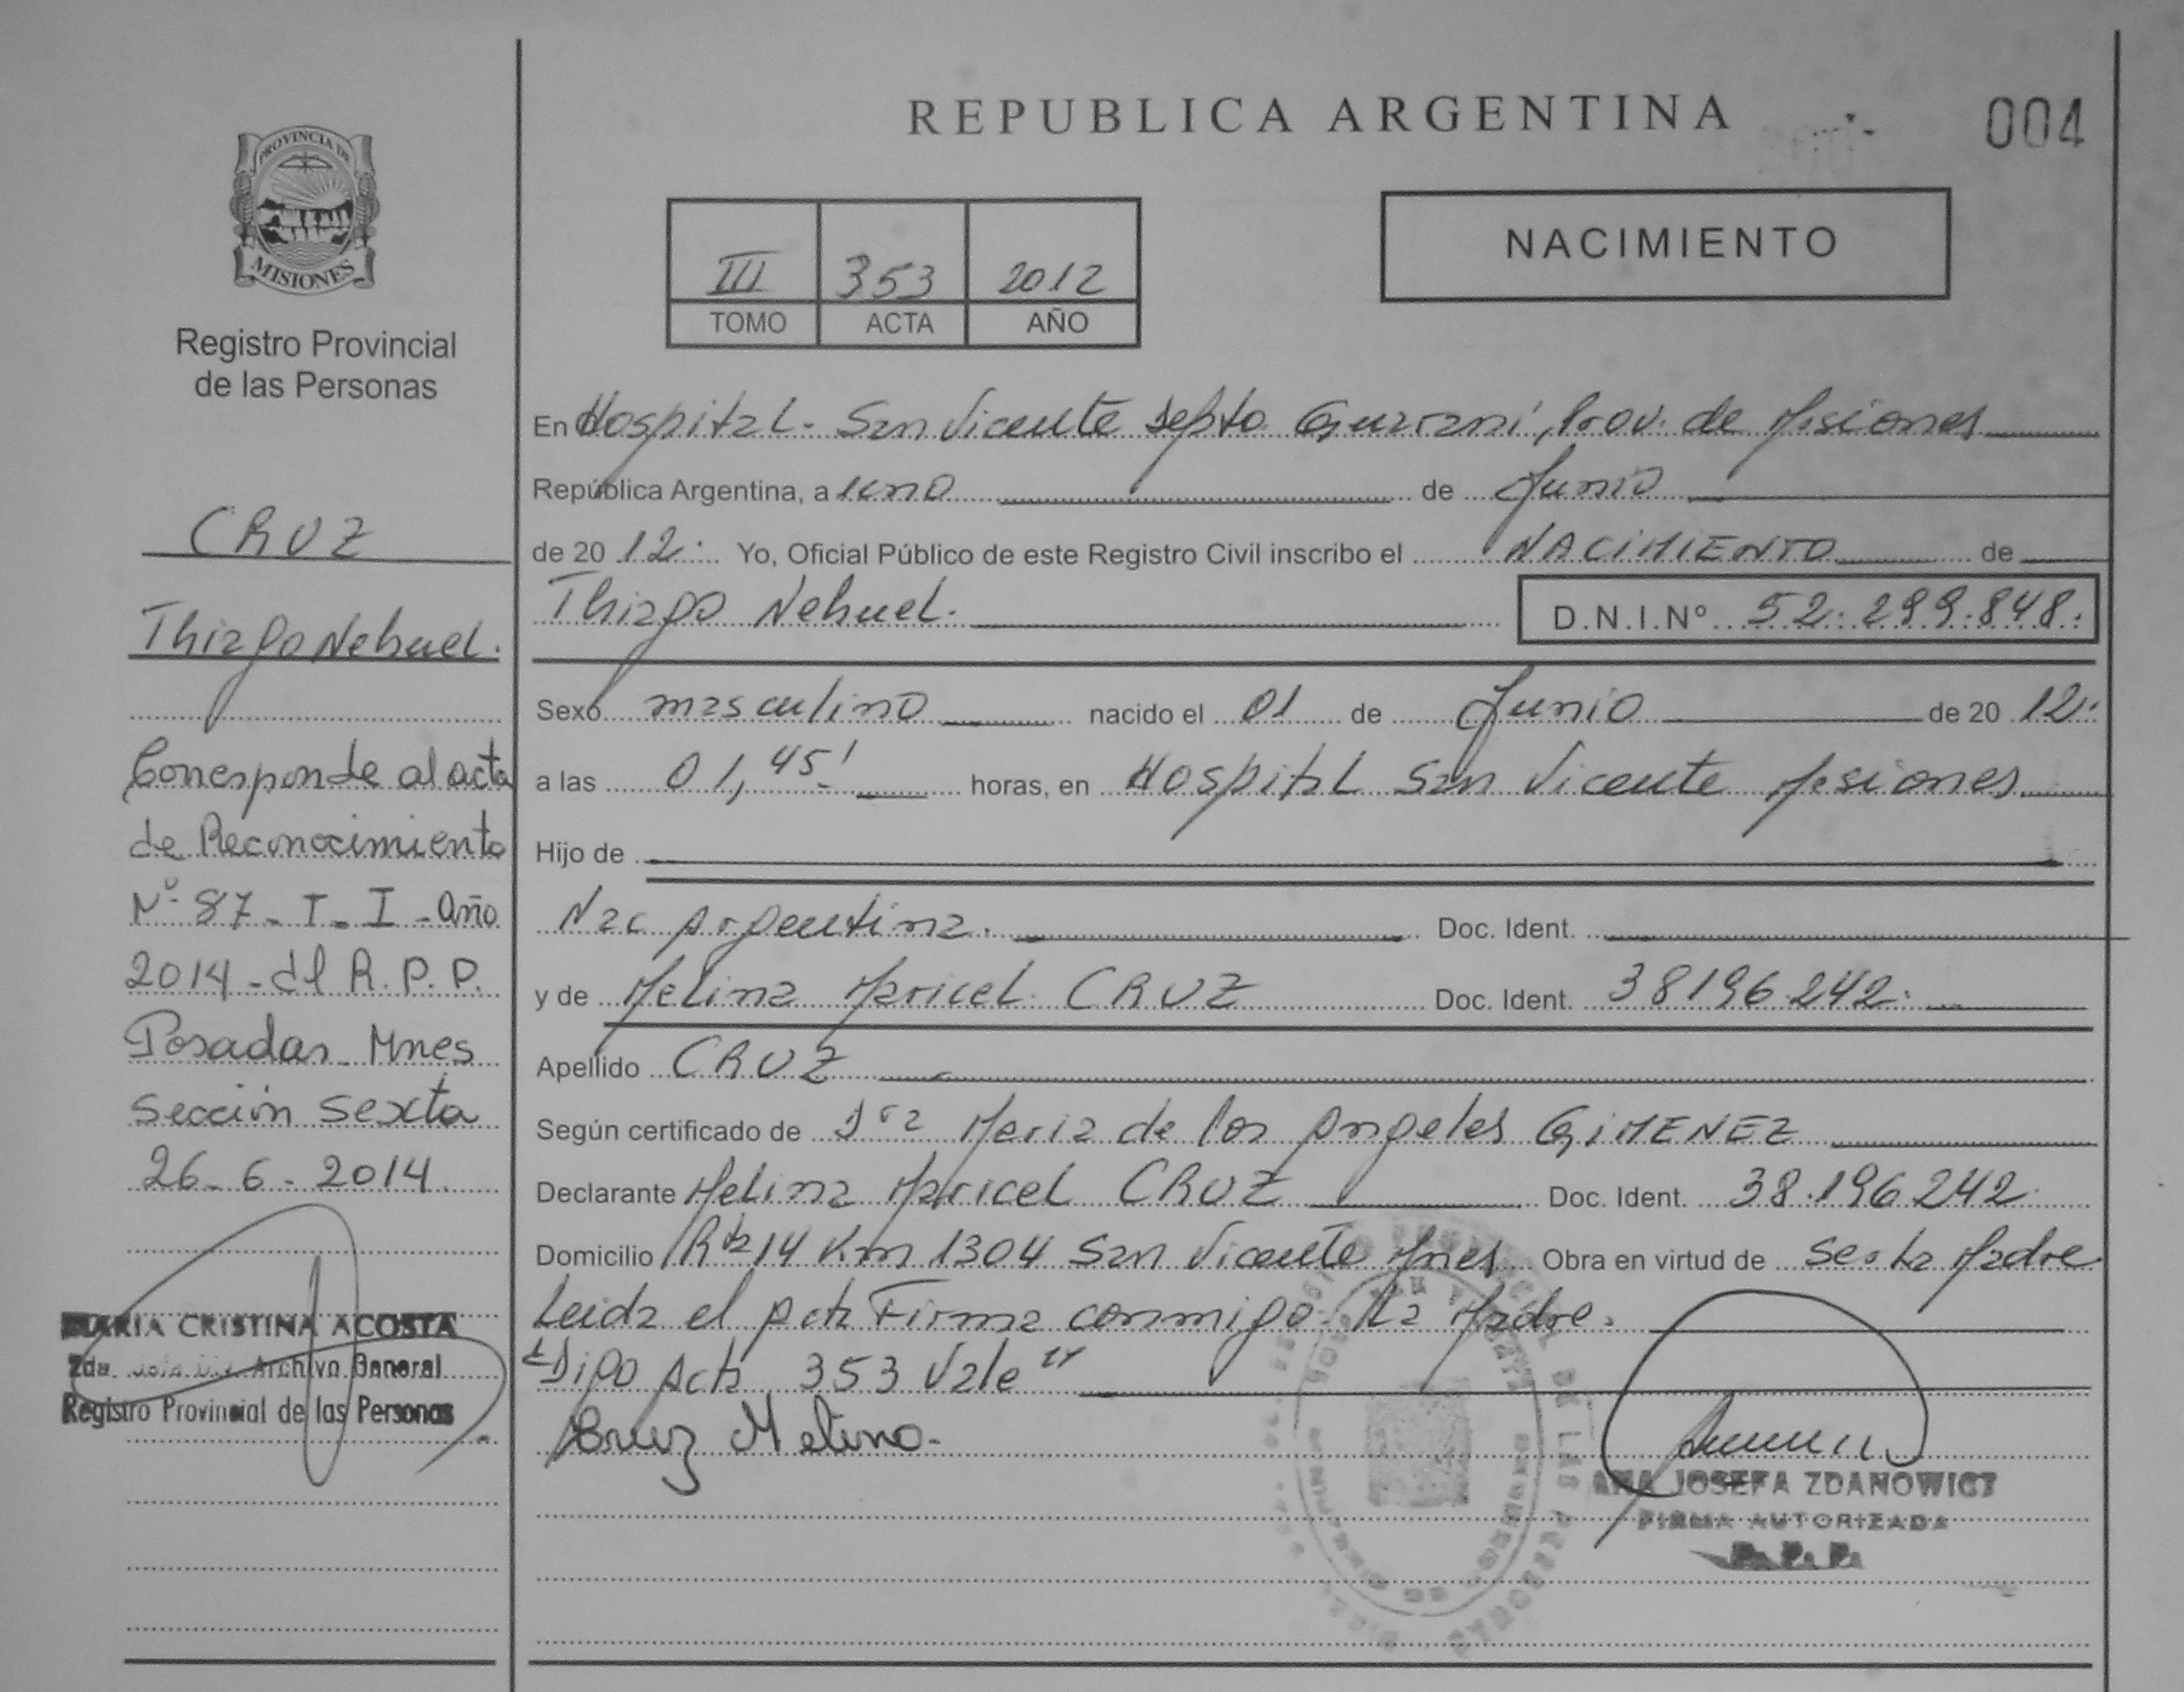 REPUBLICA ARGENTINA
004
PROVINCIA DE
MISIONES
Registro Provincial
de las Personas
III 353 2012
TOMO ACTA AÑO
NACIMIENTO
CRUZ
Thiago Nehuel.
Corresponde al acta
de Reconocimiento
Nº 87 - T - I - año
2014 - del R.P.P.
Posadas Mnes
Sección Sexta
26-6-2014
MARIA CRISTINA ACOSTA
2da. Archivo General
Registro Provincial de las Personas
En Hospital - San Vicente Depto Guarani, Prov. de Misiones
República Argentina, a uno de Junio
de 20 12. Yo, Oficial Público de este Registro Civil inscribo el NACIMIENTO de
Thiago Nehuel. D.N.I.Nº 52.299.848.
Sexo masculino nacido el 01 de Junio de 20 12.
a las 01,45' horas, en Hospital San Vicente Misiones
Hijo de
Nac Argentina. Doc. Ident.
y de Melina Maricel CRUZ Doc. Ident. 38196242.
Apellido CRUZ
Según certificado de Dra Maria de los Angeles GIMENEZ
Declarante Melina Maricel CRUZ Doc. Ident. 38.196.242
Domicilio Rta 14 Km 1304 San Vicente Mnes Obra en virtud de ser la Madre
Leida el Acta Firma conmigo La Madre.
"Digo Acta 353 Vale"
Cruz Melina.
ANA JOSEFA ZDANOWICZ
FIRMA AUTORIZADA
R.P.P.